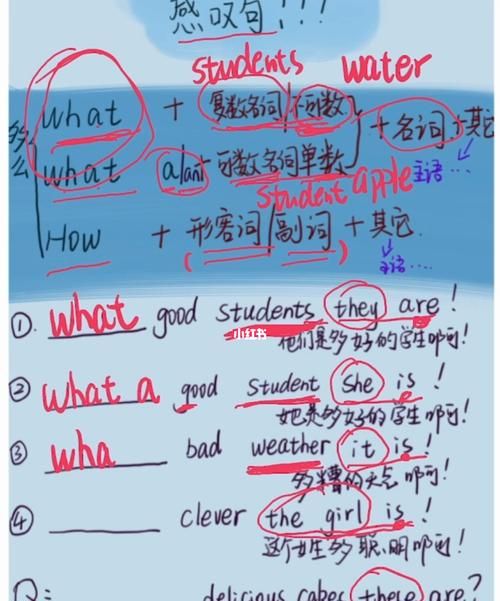 感叹句!!!
students water
what + 复数名词/不可数
+ 名词 + 其它
多么
what a/an + 可数名词单数
主语...
student apple
How + 形容词/副词 + 其它.
( ) 主语....
①. what good students they are!
小红书
他们是多好的学生啊!
② what a good student she is!
她是多好的学生啊!
③ wha bad weather it is!
多糟的天气啊!
④ clever the girl is!
这个女生多聪明啊!
Q: delicious cakes these are?